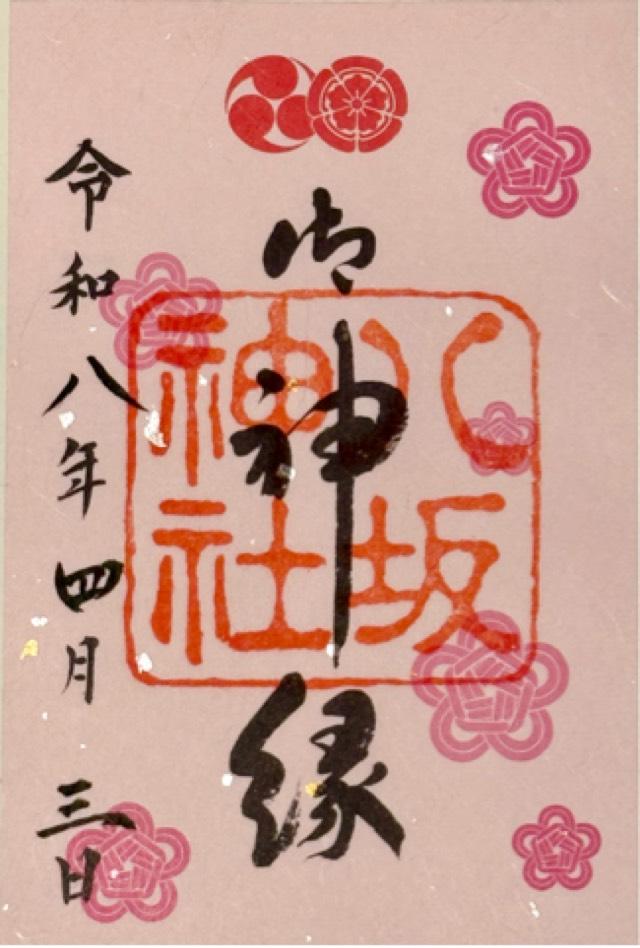 御神縁
八坂神社
令和八年四月三日